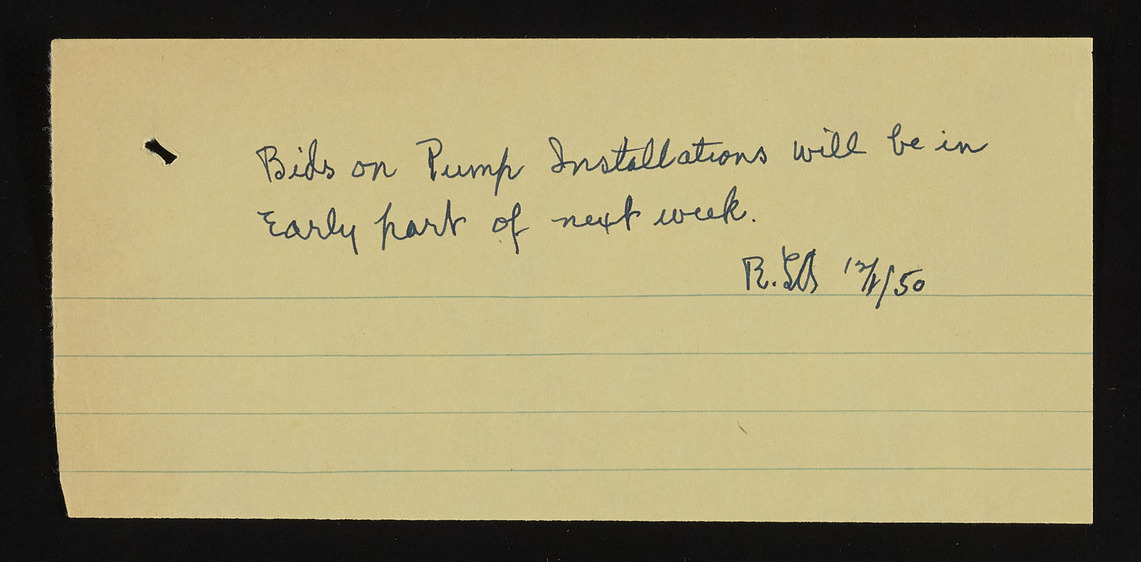 Bids on Pump Installations will be in
Early part of next week.
R. 12/1/50